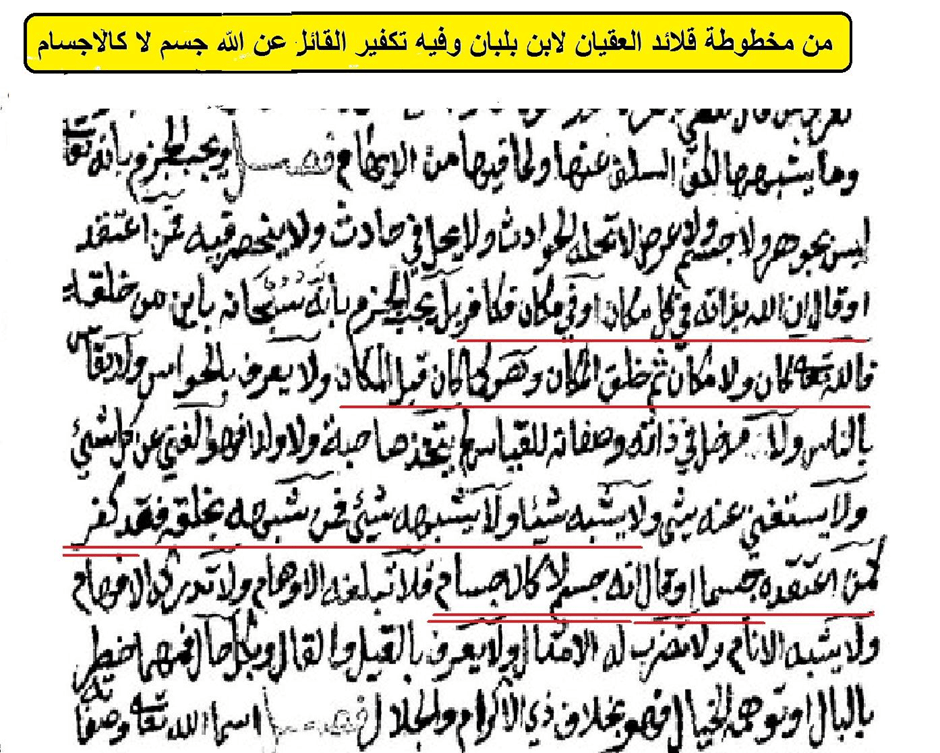 من مخطوطة قلائد العقيان لابن بلبان وفيه تكفير القائل عن الله جسم لا كالاجسام
وما يشبهها الحق السلف عنها ولما فيها من الايهام فصل ويجب الجزم بانه تعا
ليس بجوهر ولا جسم ولا عرض لا تحله الحوادث ولا يحل في حادث ولا ينحصر فيه فمن اعتقد
او قال ان الله بذاته في كل مكان او في مكان فكافر بل يجب الجزم بانه سبحانه باين من خلقه
فالله تعا كان ولا مكان ثم خلق المكان وهو كما كان قبل المكان ولا يعرف بالحواس ولا يقاس
بالناس ولا مدخل في ذاته وصفاته للقياس لم يتخذ صاحبة ولا ولدا فهو الغني عن كل شيئ
ولا يستغني عنه شيئ ولا يشبه شيئا ولا يشبهه شيئ فمن شبهه بخلقه فقد كفر
كمن اعتقده جسما او قال انه جسم لا كالاجسام فلا تبلغه الاوهام ولا تدركه الافهام
ولا يشبه الانام ولا تضرب له الامثال ولا يعرف بالقيل والقال وبكل حال فمهما خطر
بالبال او توهمه الخيال فهو بخلاف ذي الاكرام والجلال فصل اسما الله تعا وصفاته